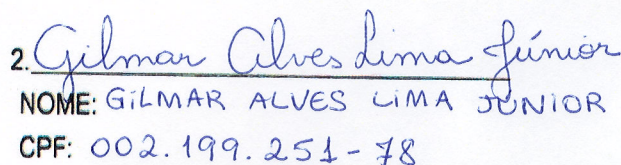 2. Gilmar Alves Lima Júnior
NOME: GILMAR ALVES LIMA JUNIOR
CPF: 002.199.251-78